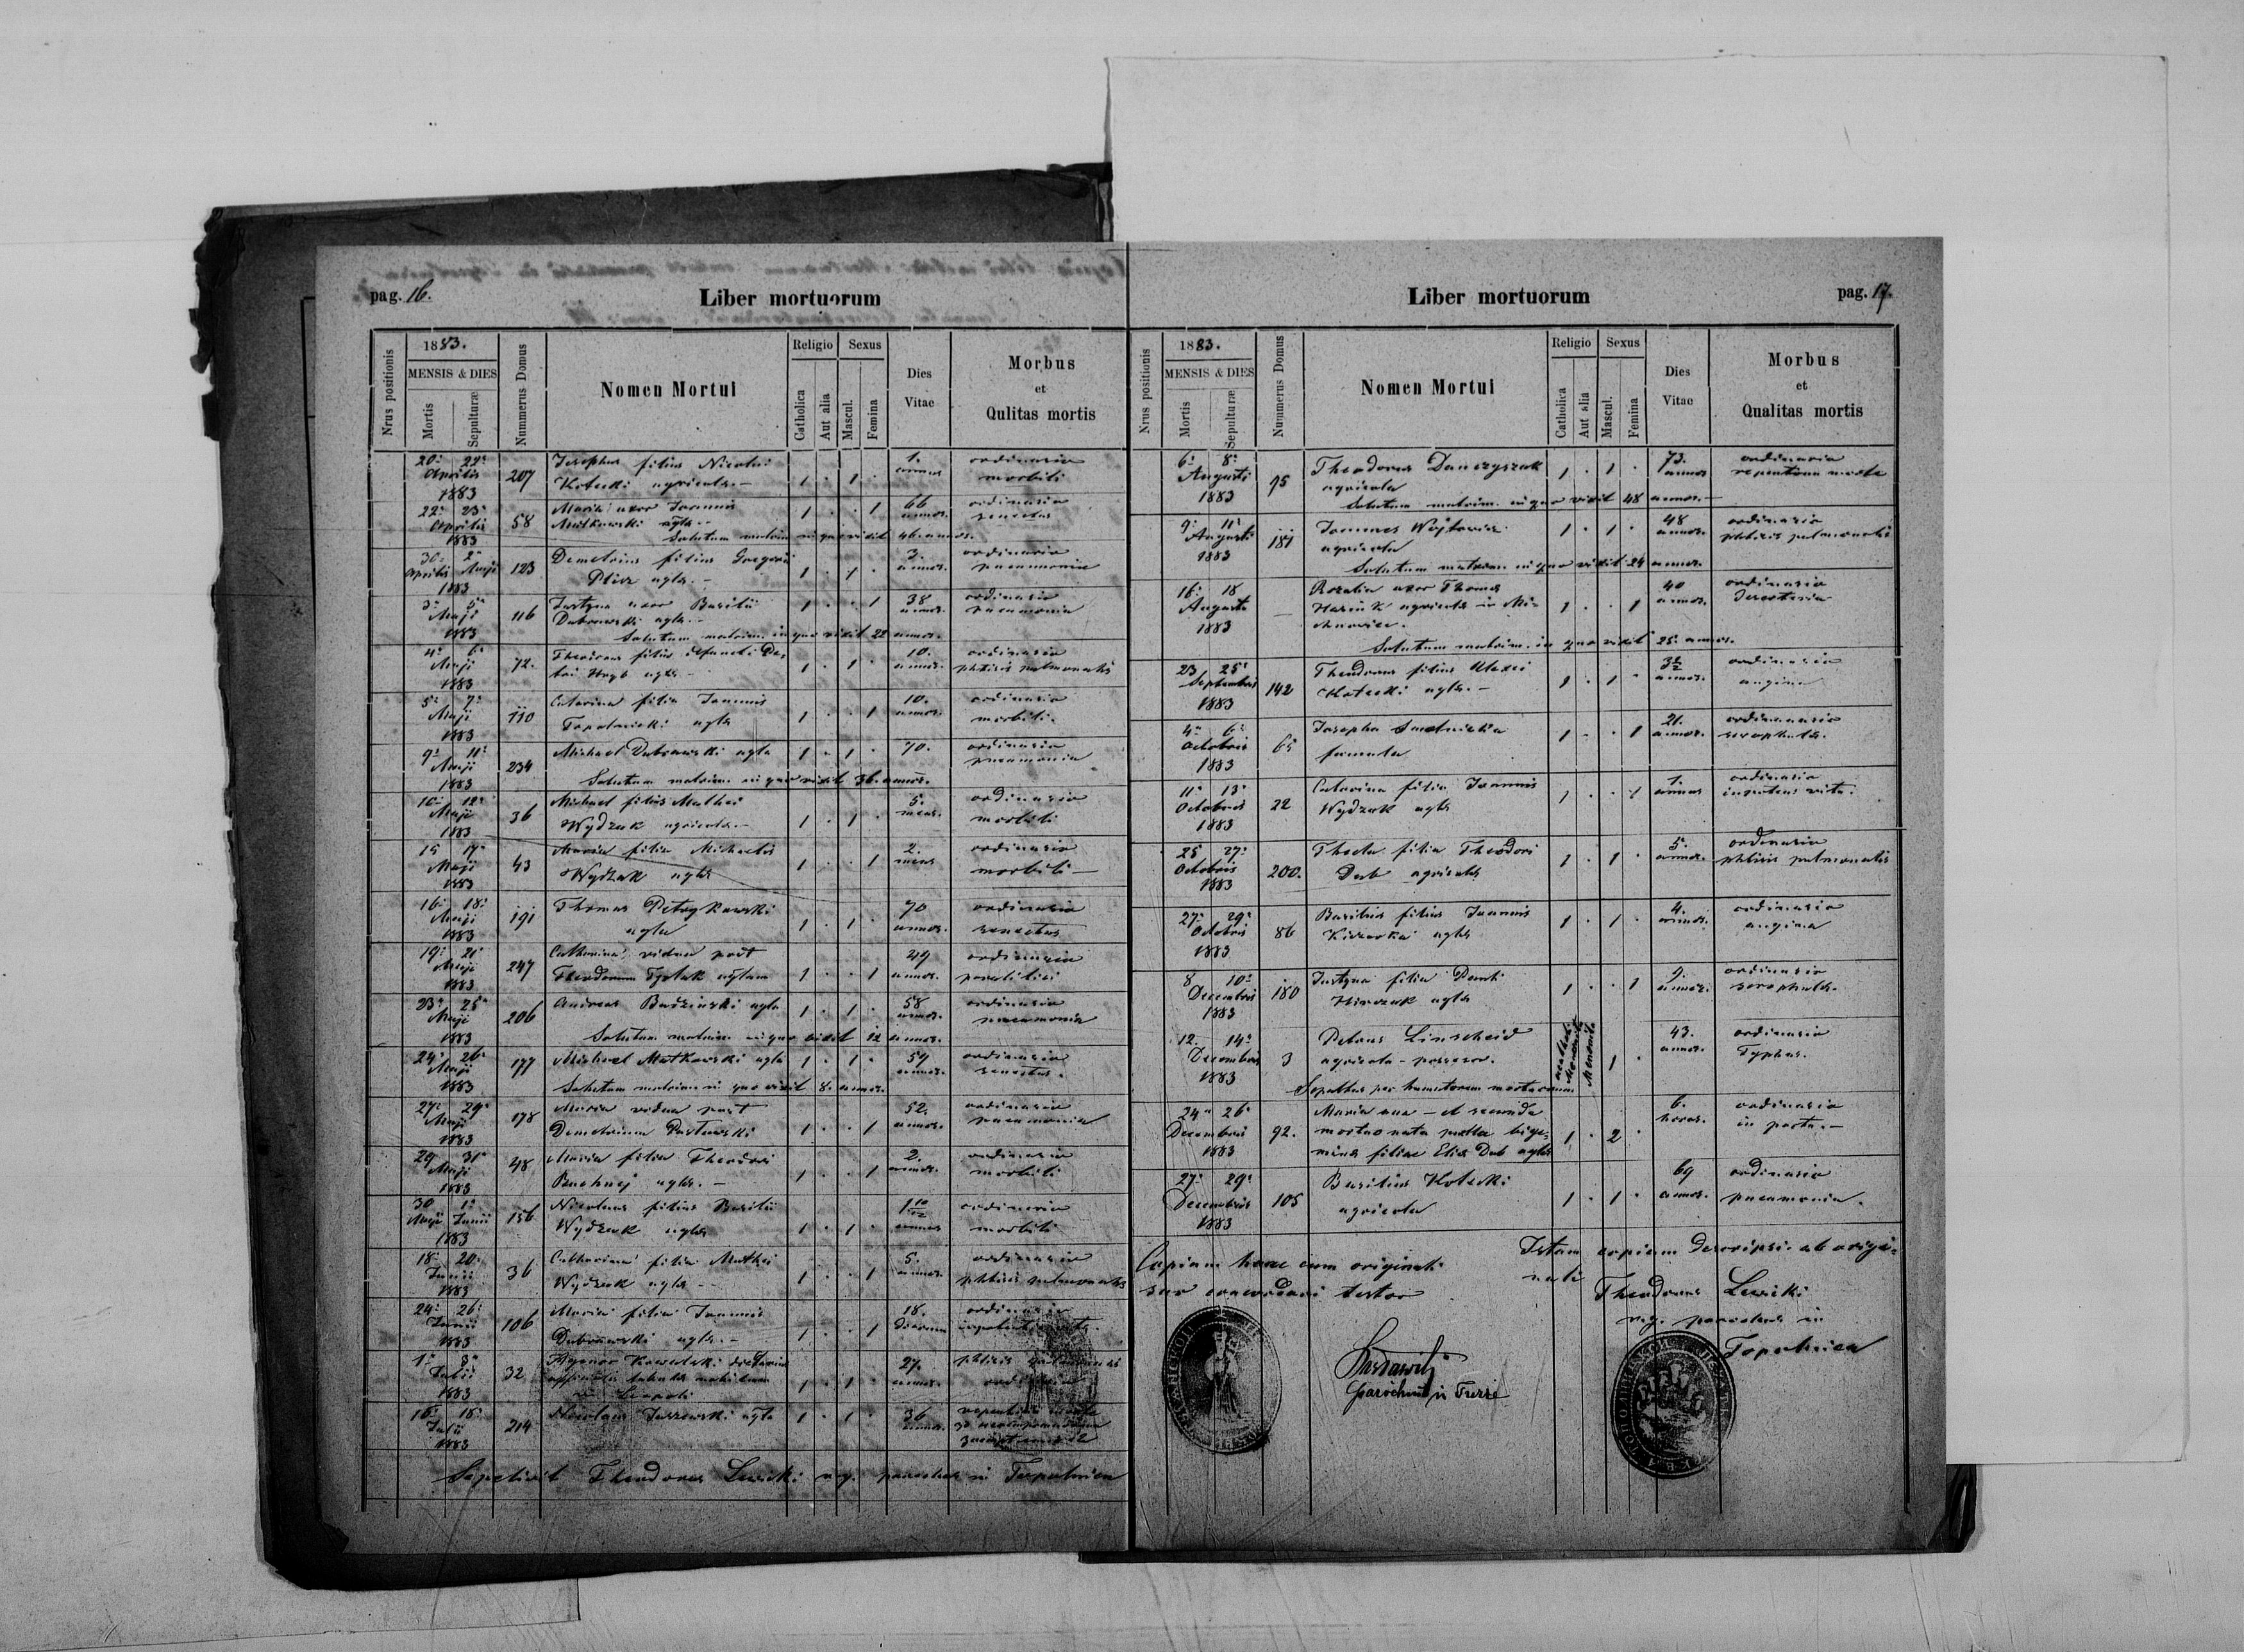 pag. 16.
Liber mortuorum
Nrus positionis
1883.
MENSIS & DIES
Mortis
Sepulturæ
Nummerus Domus
Nomen Mortui
Religio
Catholica
Aut alia
Sexus
Mascul.
Femina
Dies
Vitae
Morbus
et
Qulitas mortis
20. 22. Josephus filius Nicolai 1. ordinaria
Aprilis 207 Kotecki agricola.- 1 . 1 . annus morbili
1883
22. 23. Maria uxor Joannis 66 ordinaria
Aprilis 58 Matkowski agla.- 1 . . 1 annos. senectus
1883 Solutum matrim. in quo vixit 46 annos.
30. 2. Demetrius filius Gregorii ordinaria
Aprilis Maji 123 agla.- 1 . 1 . annos. pneumonia
1883
3. 5. Justyna uxor Basilii 38 ordinaria
Maji 116 Dubrawski agla.- 1 . . 1 annos. pneumonia
1883 Solutum matrim. in quo vixit 22 annos.
4. 6. Theodorus filius defuncti Pe- 10. ordinaria
Maji 72. tri Hryb agla - 1 . 1 . annos. phtisis pulmonalis
1883
5. 7. Catarina filia Joannis 10. ordinaria
Maji 110 Topolnicki agla 1 . . 1 annos. morbili.
1883
9. 11. Michael Dubrawski agla 1 . 1 . 70. ordinaria
Maji 234 pneumonia
1883 Solutum matrim. in quo vixit 36. annos.
10. 12. Michael filius Mathei 5. ordinaria
Maji 36 Wydzak agricola.- 1 . 1 . mens. morbili
1883
15 17. Maria filia Michaelis 2. ordinaria
Maji 43 Wydzak agla 1 . . 1 mens morbili -
1883
16. 18. Thomas Petrykowski 70 ordinaria
Maji 191 agla 1 . 1 . annos. senectus
1883
19. 21. Catharina vidua post 49 ordinaria
Maji 247 Theodorum aglam 1 . . 1 annos.
1883
23. 25. Andreas Budzinski agla 1 . 1 . 58 ordinaria
Maji 206 annos. pneumonia
1883 Solutum matrim. in quo vixit 12 annos.
24. 26. Michael Matkowski agla 1 . 1 . 59 ordinaria
Maji 177 annos. senectus.
1883 Solutum matrim. in quo vixit 8. annos.
27. 29. Maria vidua post 52. ordinaria
Maji 178 Demetrium Pastawski 1 . . 1 annos. pneumonia
1883
29 31. Maria filia Theodori 2. ordinaria
Maji 48 agla.- 1 . . 1 annos. morbili
1883
30 1. Nicolaus filius Basilii 1 10/12 ordinaria
Maji Junii 156 Wydzak agla 1 . 1 . annus morbili
1883
18. 20. Catharina filia Mathei 5. ordinaria
Junii 36 Wydzak agla.- 1 . . 1 annos. phtisis pulmonalis
1883
24. 26. Maria filia Joannis 18. ordinaria
Junii 106 Dubrawski agla.- 1 . . 1 dierum
1883
1. 3. Kowalski 27. phtisis
Julii 32 1 . 1 . annos. ordinaria
1883 Leopoli
16. 18. Nicolaus agla 1 . 1 . 36
Julii 214 annos.
1883
Sepelivit Theodorus Lewicki m.p. parochus in Topolnica
pag. 17.
Liber mortuorum
Nrus positionis
1883.
MENSIS & DIES
Mortis
Sepulturæ
Nummerus Domus
Nomen Mortui
Religio
Catholica
Aut alia
Sexus
Mascul.
Femina
Dies
Vitae
Morbus
et
Qualitas mortis
6. 8. Theodorus Danczyszak 1 . 1 . 73. ordinaria
Augusti 95 agricola annos repentina morte
1883 Solutum matrim. in quo vixit 48 annos.-
9. 11. Joannes Wojtowicz 1 . 1 . 48 ordinaria
Augusti 181 agricola annos. phtisis pulmonalis
1883 Solutum matrim. in quo vixit 24 annos.
16. 18 Rozalia uxor Thomae 40 ordinaria
Augusti - agricola in 1 . . 1 annos
1883
Solutum matrim. in quo vixit 25. annos.
23 25. Theodorus filius Alexii ordinaria
Septembris 142 Kotecki agla.- 1 . 1 . annos. angina
1883
4. 6. Josepha 21. ordinaria
Octobris 65 famula 1 . . 1 annos. scrophula.
1883
11. 13. Catarina filia Joannis 1. ordinaria
Octobris 22 Wydzak agla 1 . . 1 annus
1883
25 27. Thecla filia Theodori 5. ordinaria
Octobris 200. Dub agricola 1 . 1 . annos. phtisis pulmonalis
1883
27. 29. Basilius filius Joannis 4. ordinaria
Octobris 86 agla 1 . 1 . annos. angina
1883
8 10. Justyna filia Pauli 9. ordinaria
Decembris 180 agla 1 . . 1 annos. scrophula.
1883
12. 14. Petrus Linscheid 43. ordinaria
Decembris 3 agricola - possessor. 1 . annos. Typhus.
1883
24. 26. Maria una - et secunda 6. ordinaria
Decembris 92. mortuo nata puella bige- 1 . 2 . horas. in partu.-
1883 minae filiae Eliae Dub agla
27. 29. Basilius Kotecki 69 ordinaria
Decembris 105 agricola 1 . 1 . annos. pneumonia.
1883
Copiam hanc cum originali
suo concordari testor
parochus in Turze
Istam copiam descripsi ab origi-
nali
Theodorus Lewicki
m.p. parochus in
Topolnica